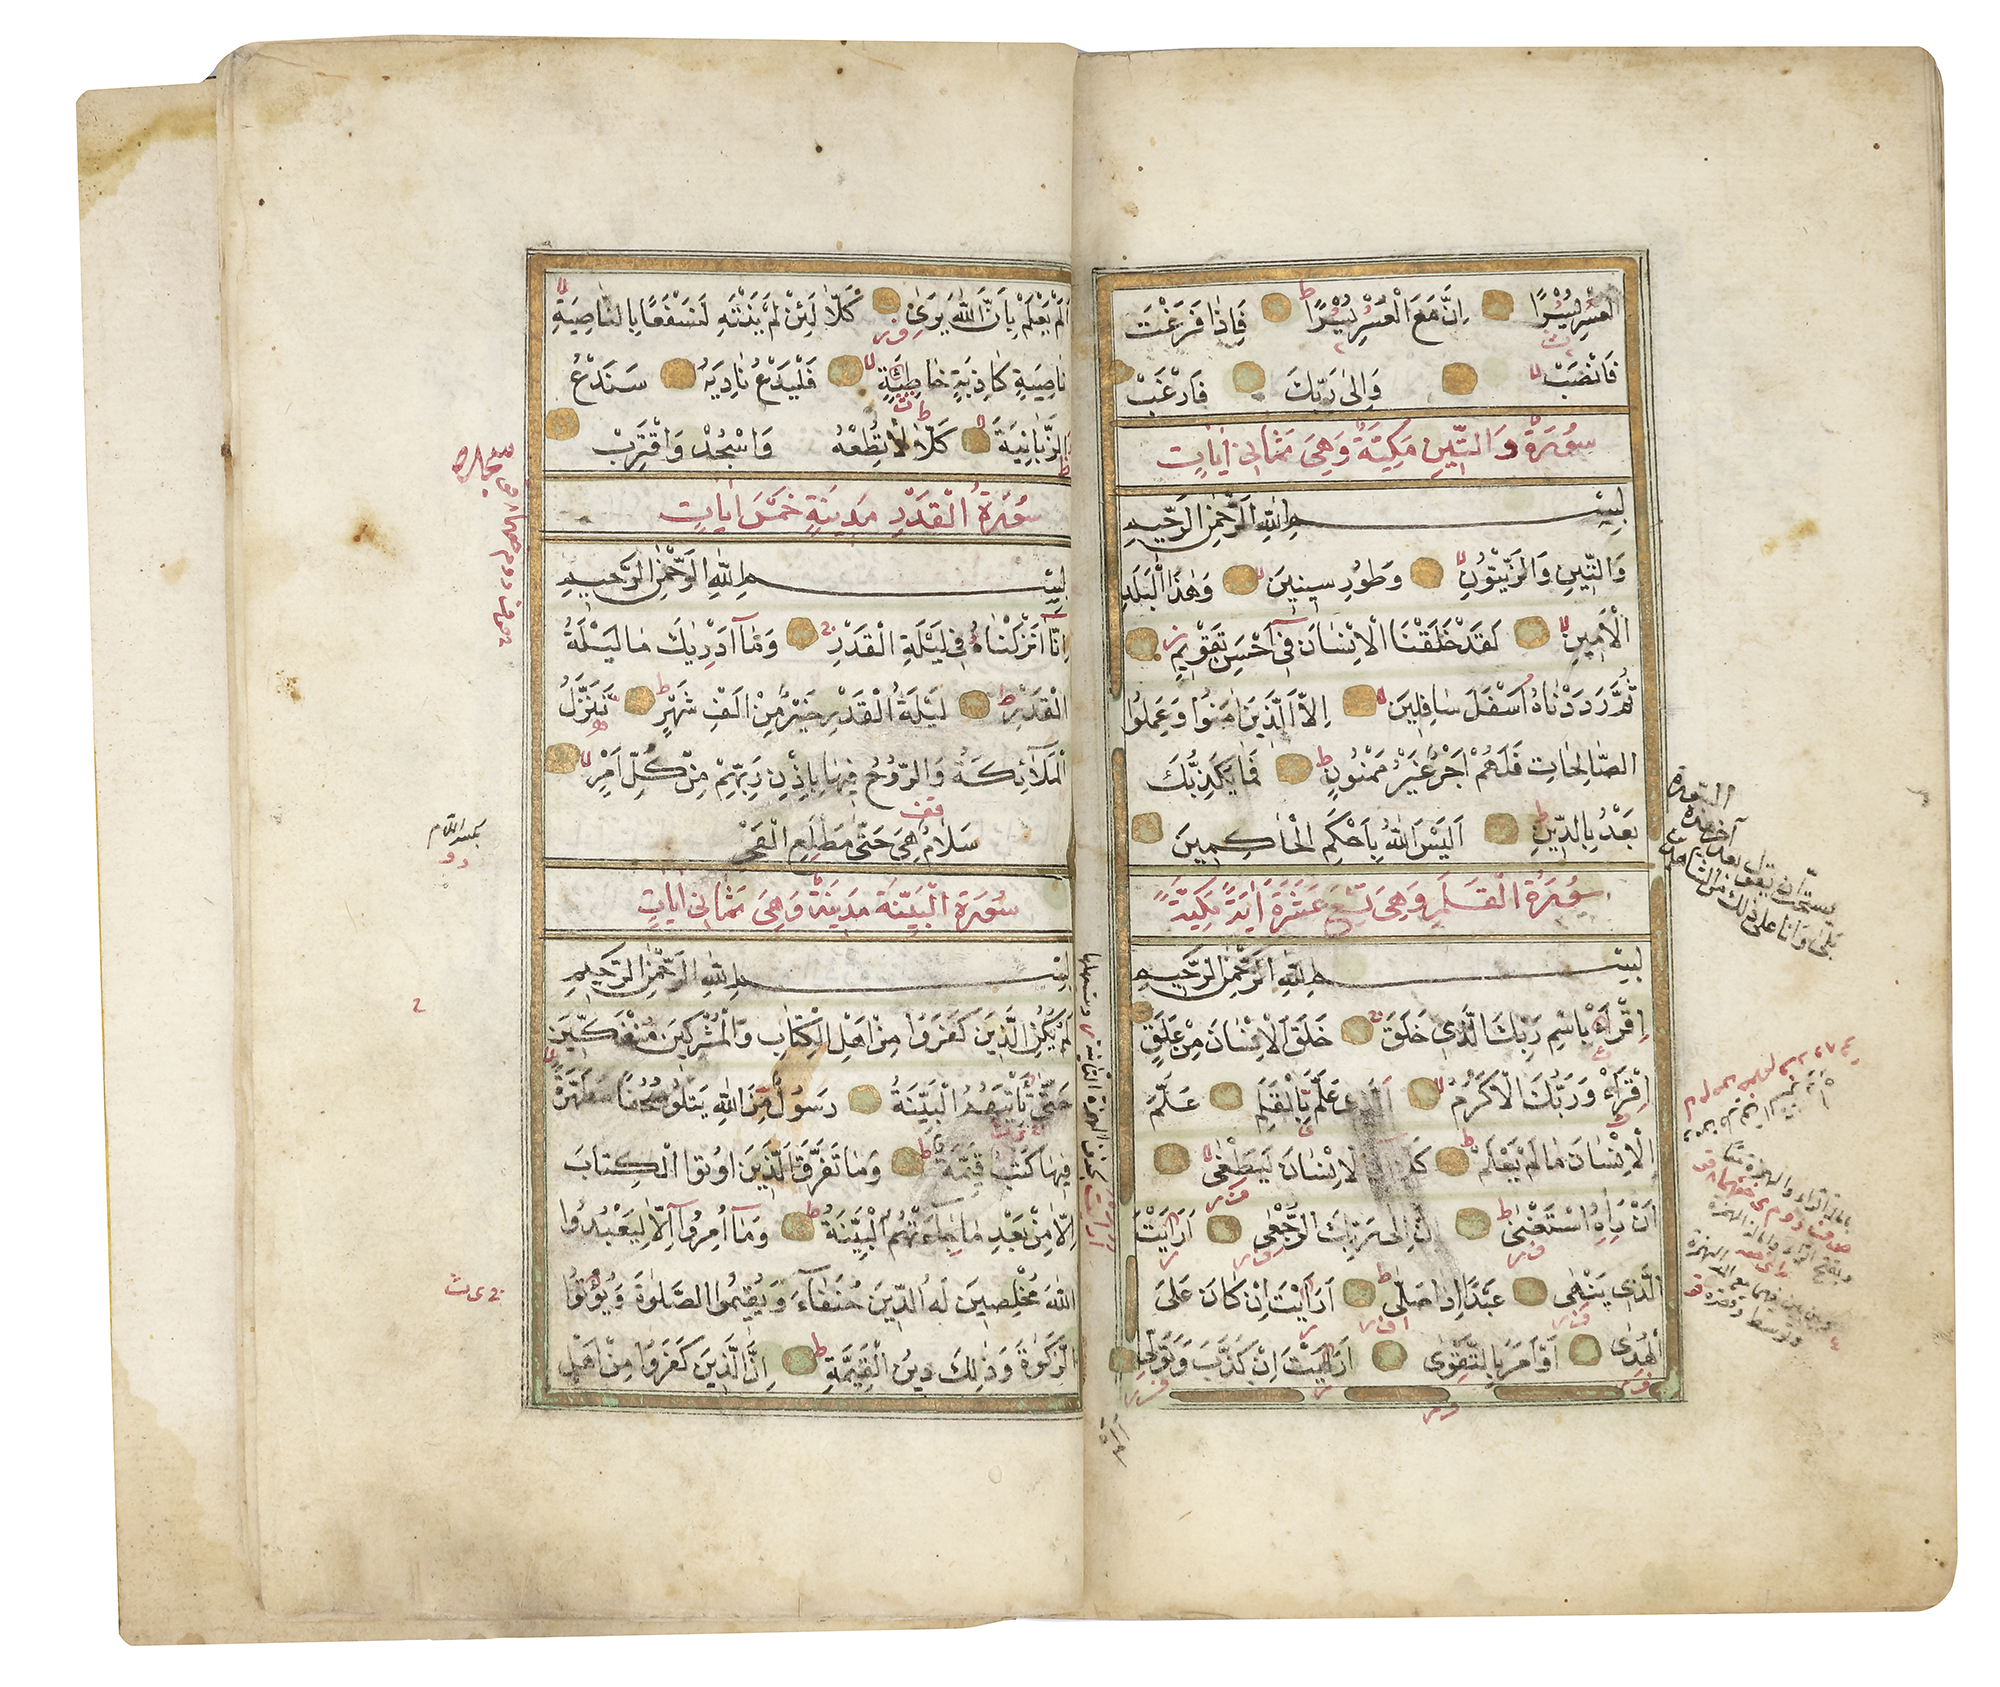 الْعُسْرِ يُسْرًا اِنَّ مَعَ الْعُسْرِ يُسْرًا فَاِذَا فَرَغْتَ
فَانْصَبْ وَاِلٰى رَبِّكَ فَارْغَبْ
سُورَةُ وَالتِّينِ مَكِّيَّةٌ وَهِيَ ثَمَانِي اٰيَاتٍ
بِسْمِ اللّٰهِ الرَّحْمٰنِ الرَّحِيمِ
وَالتِّينِ وَالزَّيْتُونِ وَطُورِ سِينِينَ وَهٰذَا الْبَلَدِ
الْاَمِينِ لَقَدْ خَلَقْنَا الْاِنْسَانَ فِىٓ اَحْسَنِ تَقْوِيمٍ
ثُمَّ رَدَدْنَاهُ اَسْفَلَ سَافِلِينَ اِلَّا الَّذِينَ اٰمَنُوا وَعَمِلُوا
الصَّالِحَاتِ فَلَهُمْ اَجْرٌ غَيْرُ مَمْنُونٍ فَمَا يُكَذِّبُكَ
بَعْدُ بِالدِّينِ اَلَيْسَ اللّٰهُ بِاَحْكَمِ الْحَاكِمِينَ
سُورَةُ الْقَلَمِ وَهِيَ تِسْعَ عَشَرَةَ اٰيَةً مَكِّيَّةً
بِسْمِ اللّٰهِ الرَّحْمٰنِ الرَّحِيمِ
اِقْرَاْ بِاسْمِ رَبِّكَ الَّذِى خَلَقَ خَلَقَ الْاِنْسَانَ مِنْ عَلَقٍ
اِقْرَاْ وَرَبُّكَ الْاَكْرَمُ اَلَّذِى عَلَّمَ بِالْقَلَمِ عَلَّمَ
الْاِنْسَانَ مَا لَمْ يَعْلَمْ كَلَّا اِنَّ الْاِنْسَانَ لَيَطْغٰى
اَنْ رَاٰهُ اسْتَغْنٰى اِنَّ اِلٰى رَبِّكَ الرُّجْعٰى اَرَاَيْتَ
الَّذِى يَنْهٰى عَبْدًا اِذَا صَلّٰى اَرَاَيْتَ اِنْ كَانَ عَلَى
الْهُدٰى اَوْ اَمَرَ بِالتَّقْوٰى اَرَاَيْتَ اِنْ كَذَّبَ وَتَوَلّٰى
اَلَمْ يَعْلَمْ بِاَنَّ اللّٰهَ يَرٰى كَلَّا لَئِنْ لَمْ يَنْتَهِ لَنَسْفَعًا بِالنَّاصِيَةِ
نَاصِيَةٍ كَاذِبَةٍ خَاطِئَةٍ فَلْيَدْعُ نَادِيَهُ سَنَدْعُ
الزَّبَانِيَةَ كَلَّا لَا تُطِعْهُ وَاسْجُدْ وَاقْتَرِبْ
سُورَةُ الْقَدْرِ مَدِينَةٍ خَمْسَ اٰيَاتٍ
بِسْمِ اللّٰهِ الرَّحْمٰنِ الرَّحِيمِ
اِنَّٓا اَنْزَلْنَاهُ فِى لَيْلَةِ الْقَدْرِ وَمَٓا اَدْرٰيكَ مَا لَيْلَةُ
الْقَدْرِ لَيْلَةُ الْقَدْرِ خَيْرٌ مِنْ اَلْفِ شَهْرٍ تَنَزَّلُ
الْمَلٰٓائِكَةُ وَالرُّوحُ فِيهَا بِاِذْنِ رَبِّهِمْ مِنْ كُلِّ اَمْرٍ
سَلَامٌ هِيَ حَتّٰى مَطْلَعِ الْفَجْرِ
سُورَةُ الْبَيِّنَةِ مَدِينَةٌ وَهِيَ ثَمَانِي اٰيَاتٍ
بِسْمِ اللّٰهِ الرَّحْمٰنِ الرَّحِيمِ
لَمْ يَكُنِ الَّذِينَ كَفَرُوا مِنْ اَهْلِ الْكِتَابِ وَالْمُشْرِكِينَ مُنْفَكِّينَ
حَتّٰى تَاْتِيَهُمُ الْبَيِّنَةُ رَسُولٌ مِنَ اللّٰهِ يَتْلُو صُحُفًا مُطَهَّرَةً
فِيهَا كُتُبٌ قَيِّمَةٌ وَمَا تَفَرَّقَ الَّذِينَ اُوتُوا الْكِتَابَ
اِلَّا مِنْ بَعْدِ مَا جَاءَتْهُمُ الْبَيِّنَةُ وَمَٓا اُمِرُٓوا اِلَّا لِيَعْبُدُوا
اللّٰهَ مُخْلِصِينَ لَهُ الدِّينَ حُنَفَٓاءَ وَيُقِيمُوا الصَّلٰوةَ وَيُؤْتُوا
الزَّكٰوةَ وَذٰلِكَ دِينُ الْقَيِّمَةِ اِنَّ الَّذِينَ كَفَرُوا مِنْ اَهْلِ